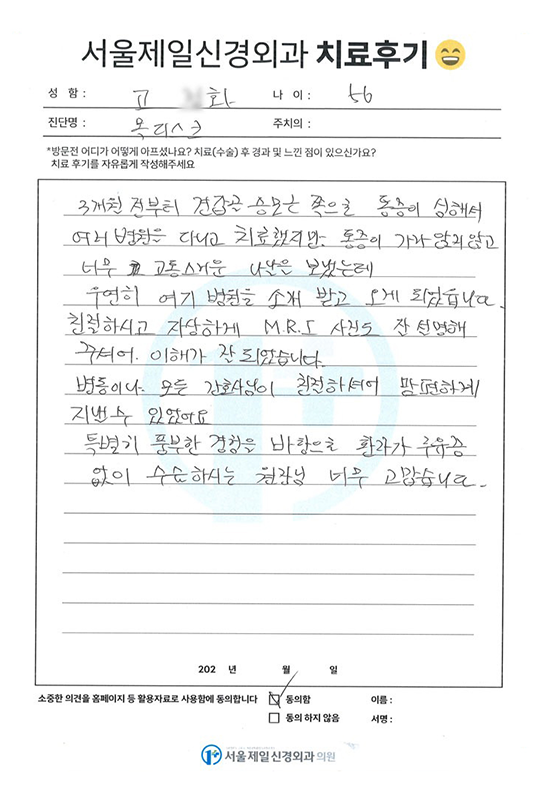 서울제일신경외과 치료후기
성 함 : 고 화 나 이 : 56
진단명 : 목디스크 주치의 :
*방문전 어디가 어떻게 아프셨나요? 치료(수술) 후 경과 및 느낀 점이 있으신가요?
치료 후기를 자유롭게 작성해주세요
3개월 전부터 견갑골 승모근 쪽으로 통증이 심해서
여러병원을 다니고 치료했지만 통증이 가라앉지않고
너무 고통스러운 나날을 보냈는데
우연히 여기 병원을 소개 받고 오게 되었습니다.
친절하시고 자상하게 M.R.I 사진도 잘 설명해
주셔어. 이해가 잘 되었습니다.
병동이나. 모든 간호사님이 친절하셔어 맘편하게
지낼수 있었어요
특별히 풍부한 경험을 바탕으로 환자가 후유증
없이 수술하시는 원장님 너무 고맙습니다.
202 년 월 일
소중한 의견을 홈페이지 등 활용자료로 사용함에 동의합니다 동의함 이름 :
동의 하지 않음 서명 :
서울제일신경외과의원